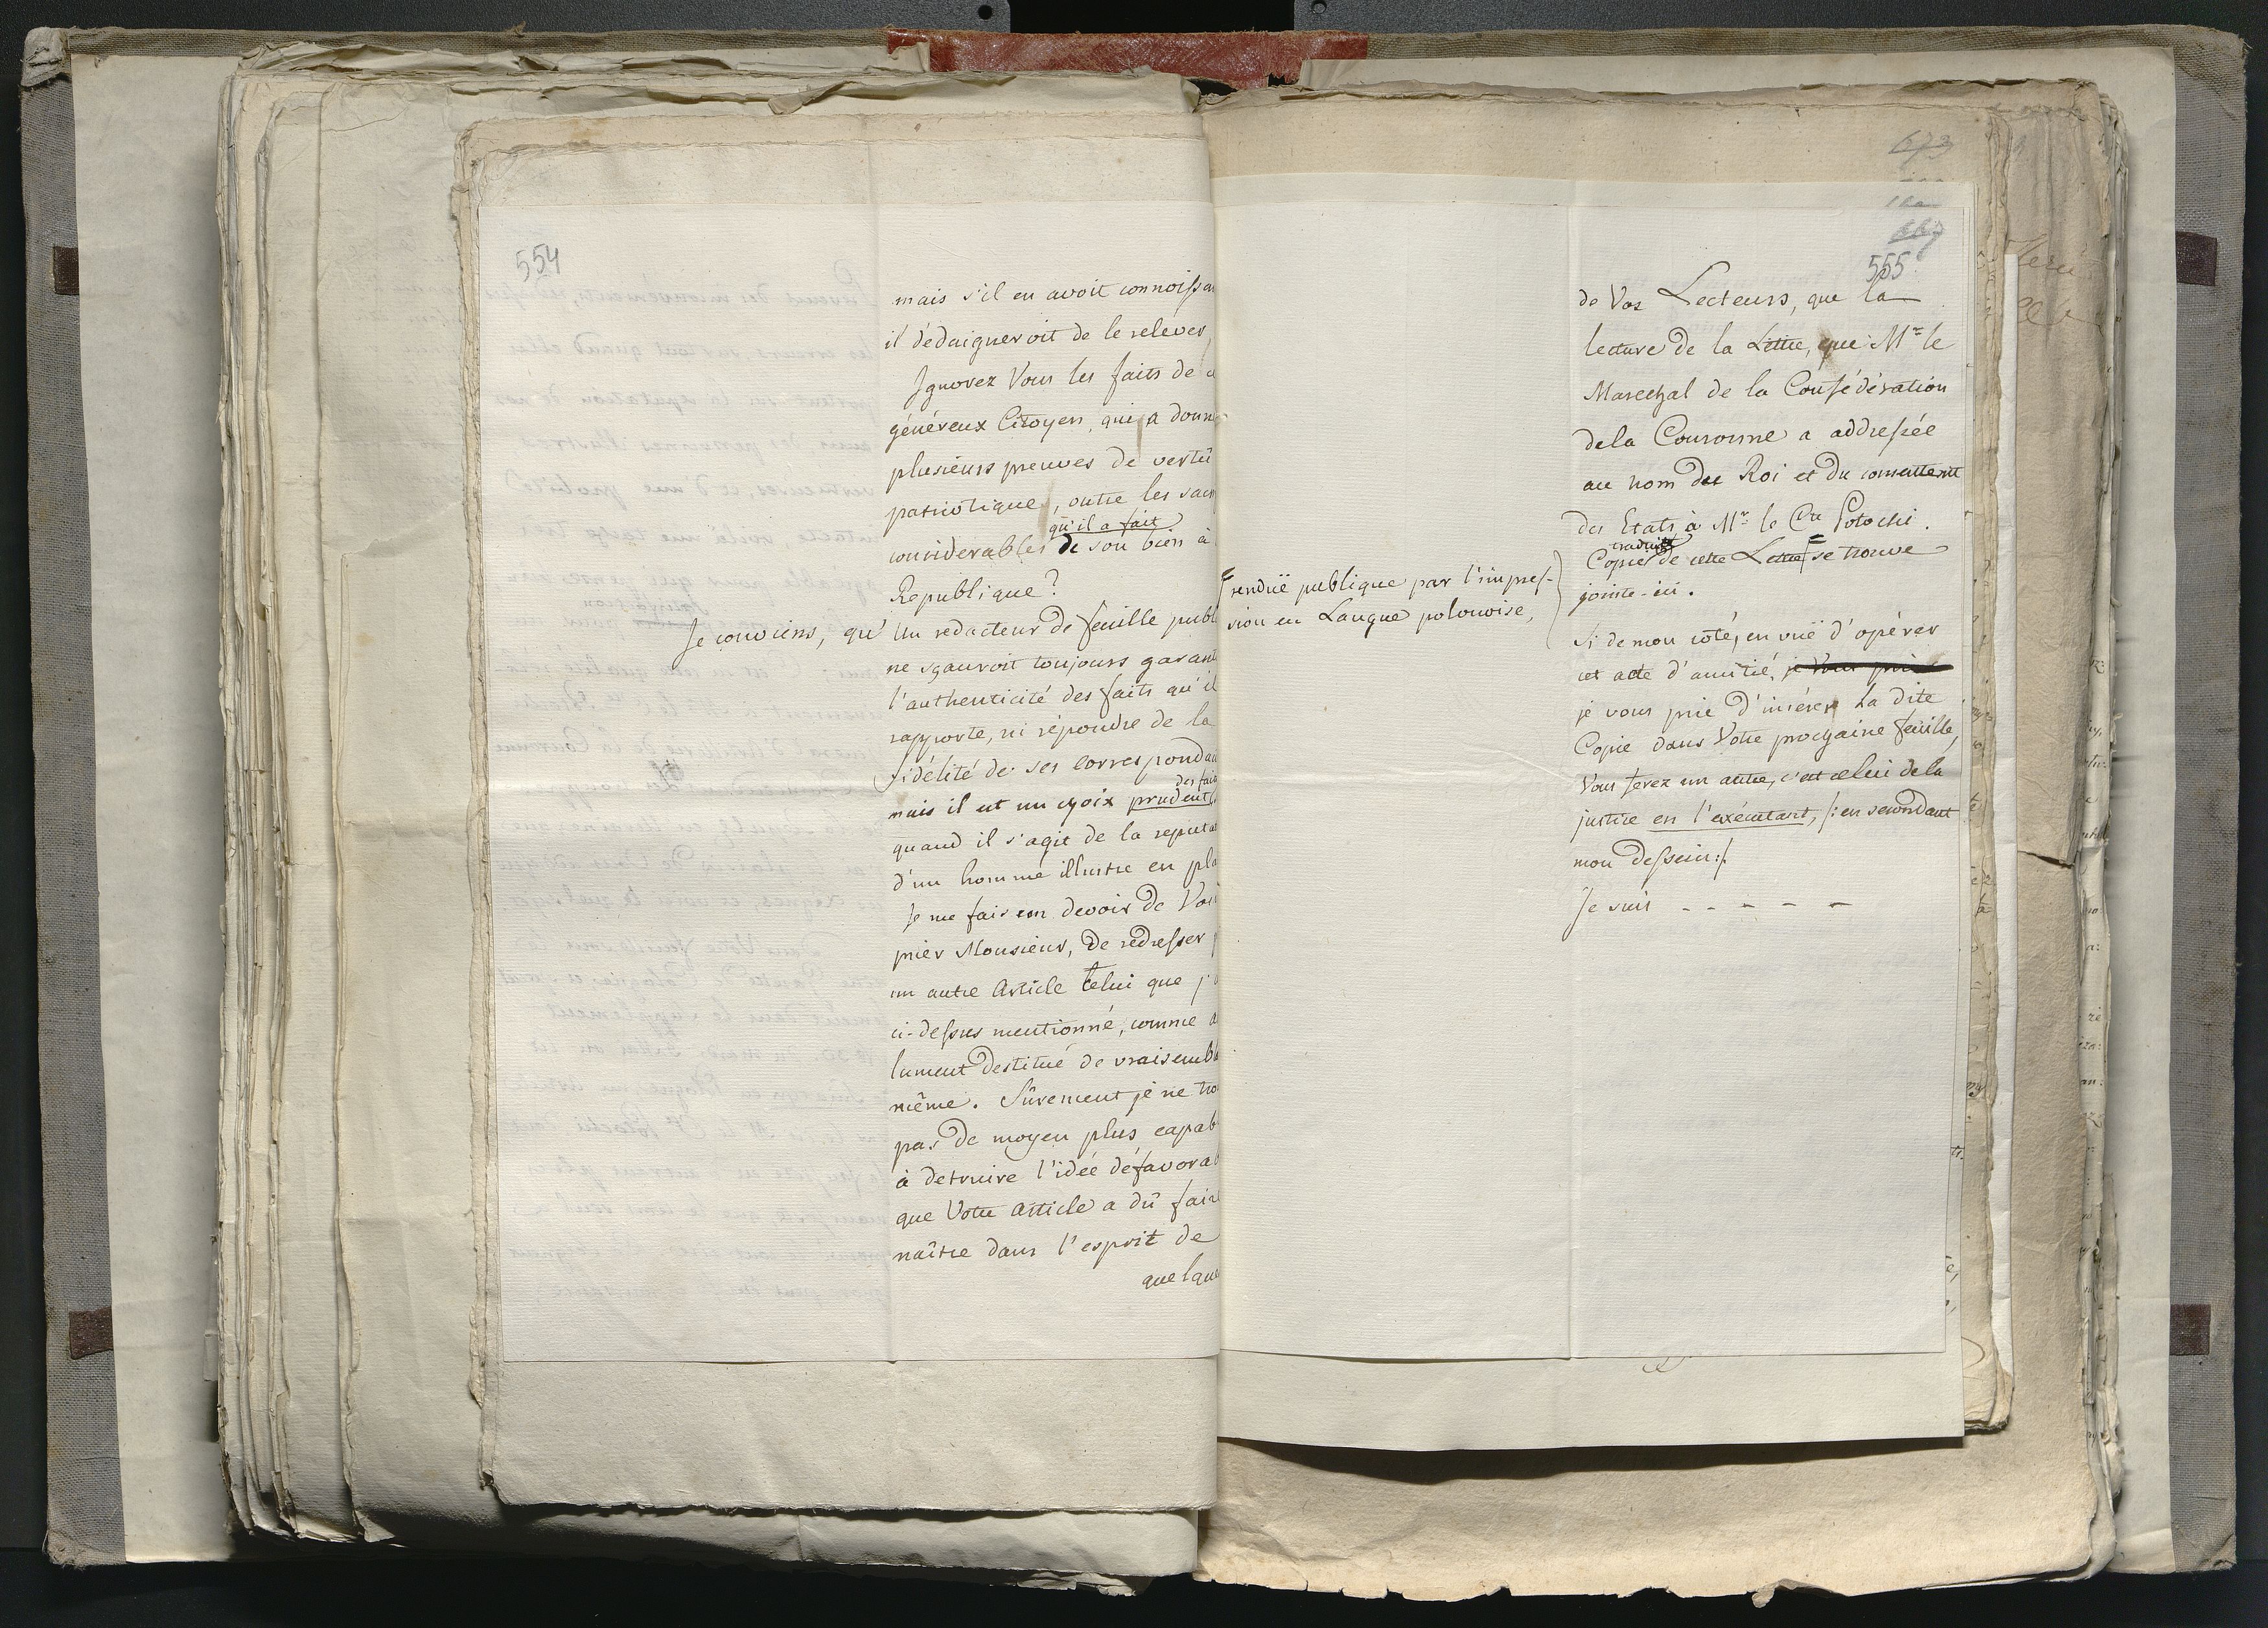 554
mais s'il en avoit connoissan
il dédaigneroit de le relever,
Ignorez Vous les faits de c
généreux Citoyen, qui a donn
plusieurs preuves de vertu
patriotique, outre les sacr
qu'il a fait
considerables de son bien à
Republique?
Je conviens, qu' Un redacteur de feuille publ
ne sçauroit toujours garant
l'authenticité des faits qu'il
rapporte, ni répondre de la
fidélité de ses correspondan
des fai
mais il est un choix prudent
quand il s'agit de la reputat
d'un homme illustre en pla
Je me fais un devoir de Vous
prier Monsieur, de redresser p
un autre Article celui que j'
ci-dessus mentionné, comme a
lument destitué de vraisembl
même. Sûrement je ne tro
pas de moyen plus capab
à detruire l'idée défavorab
que Votre article a dû faire
naître dans l'esprit de
quelque
673
667
555
de Vos Lecteurs, que la
lecture de la Lettre, que Mr. le
Marechal de la Confédération
de la Couronne a addressée
au nom du Roi et du consentement
des Etats à Mr. le Cte Potocki.
traduite
Copie de cette Lettre se trouve
jointe-ici.
rendüe publique par l'impres-
sion en Langue polonoise,
Si de mon côté, en vüe d'opérer
cet acte d'amitié, je Vous prie
je vous prie d'insérer la dite
Copie dans Votre prochaine feuille,
Vous ferez un autre, c'est celui de la
justice en l'exécutant, /: en secondant
mon dessein :/
Je suis - - - - -